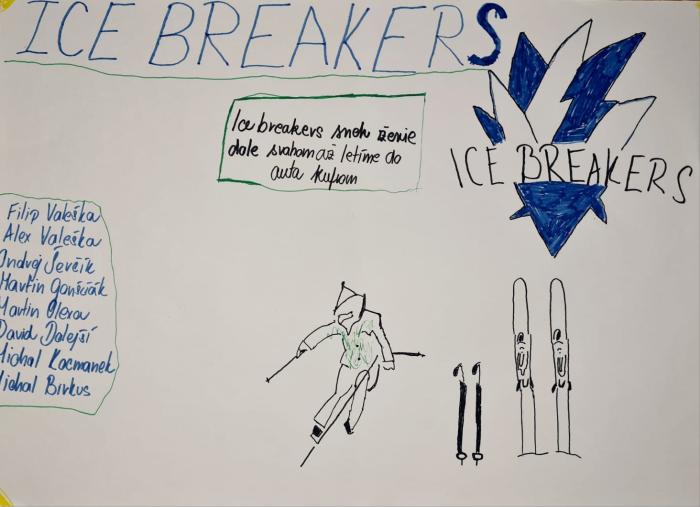 ICE BREAKERS
Ice breakers sneh ženie
dole svahom až letíme do
auta kupom
ICE BREAKERS
Filip Valeška
Alex Valeška
Ondrej Ševčík
Martin
Martin Olexa
David Dolejší
Michal Kocmanek
Michal Birkus